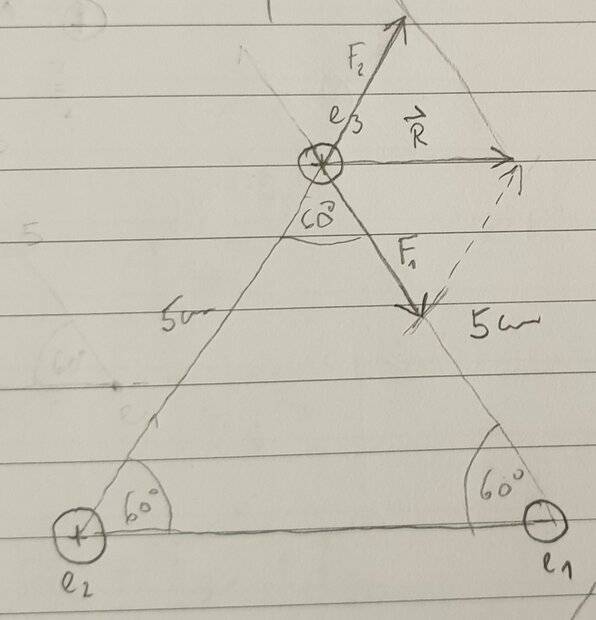 F₂
e₃
R⃗
60°
F₁
5cm
5cm
60°
60°
+
-
e₂
e₁